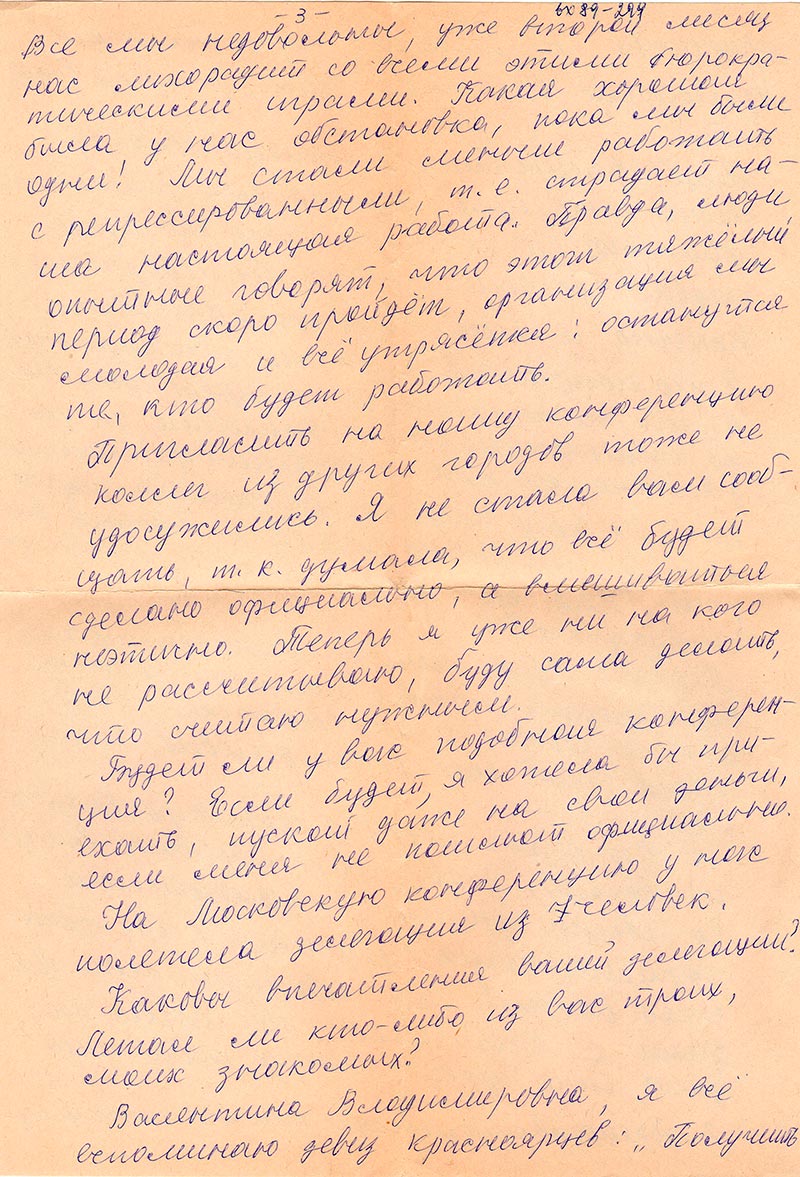 -3-
вх 89-299
Все мы недовольны, уже второй месяц
нас лихорадит со всеми этими бюрокра-
тическими играми. Какая хорошая
была у нас обстановка, пока мы были
одни! Мы стали меньше работать
с репрессированными, т. е. страдает на-
ша настоящая работа. Правда, люди
опытные говорят, что этот тяжёлый
период скоро пройдёт, организация мы
молодая и всё утрясётся: останутся
те, кто будет работать.
Пригласить на нашу конференцию
коллег из других городов тоже не
удосужились. Я не стала вам сооб-
щать, т. к. думала, что всё будет
сделано официально, а вмешиваться
неэтично. Теперь я уже ни на кого
не рассчитываю, буду сама делать,
что считаю нужным.
Будет ли у вас подобная конферен-
ция? Если будет, я хотела бы при-
ехать, пускай даже на свои деньги,
если меня не пошлют официально.
На Московскую конференцию у нас
полетела делегация из 7 человек.
Каковы впечатления вашей делегации?
Летал ли кто-либо из вас троих,
моих знакомых?
Валентина Владимировна, я всё
вспоминаю девиз красноярцев: „Получить